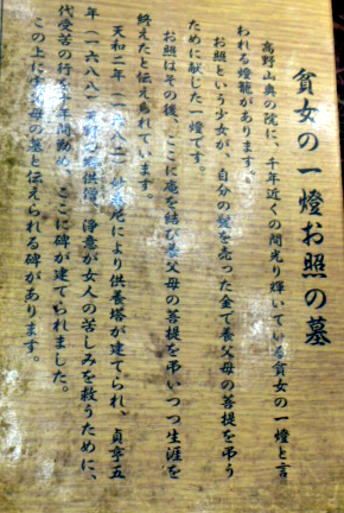 貧女の一燈お照の墓
高野山奥の院に、千年近くの間光り輝いている貧女の一燈と言
われる燈籠があります。
お照という少女が、自分の髪を売った金で養父母の菩提を弔う
ために献じた一燈です。
お照はその後、ここに庵を結び養父母の菩提を弔いつつ生涯を
終えたと伝えられています。
天和二年(一六八二)妙 尼により供養塔が建てられ、貞享五
年(一六八八)天野の 供僧、浄意が女人の苦しみを救うために、
代受苦の行を千年間勤め、ここに碑が建てられました。
この上に養父母の墓と伝えられる碑があります。